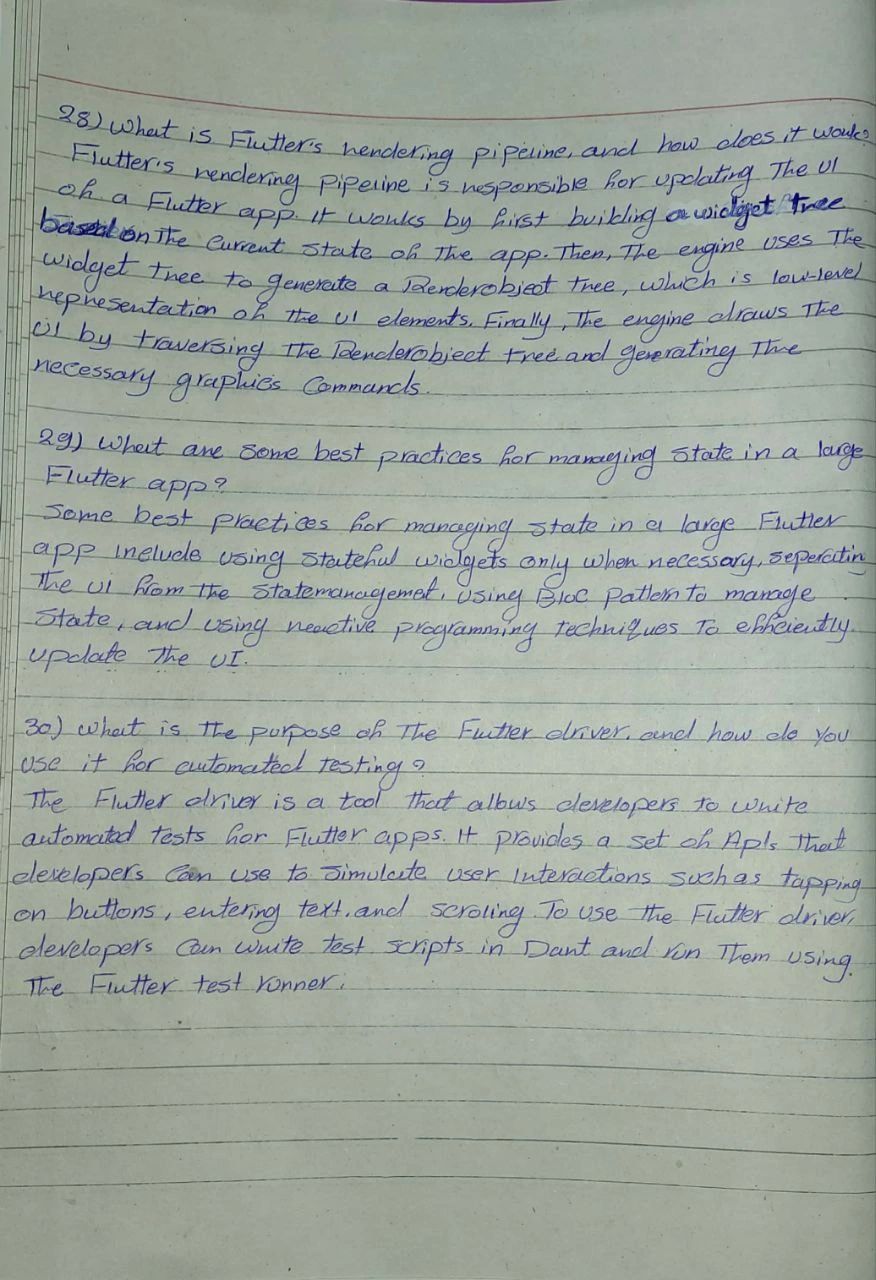 28) What is Flutter's rendering pipeline, and how does it work?
Flutter's rendering pipeline is responsible for updating The UI
of a Flutter app. It works by first building a widget tree
based on The Current State of The app. Then, The engine uses The
widget tree to generate a Renderobject tree, which is low-level
representation of the UI elements. Finally, The engine draws The
UI by traversing The Renderobject tree and generating The
necessary graphics Commands.
29) What are Some best practices for managing State in a large
Flutter app?
Some best practices for managing state in a large Flutter
app include using Stateful widgets only when necessary, seperatin
The UI from The Statemanagemet, using Bloc Pattern to manage
State, and using reactive programming techniques To efficiently
update The UI.
30) What is the purpose of The Flutter driver, and how do you
use it for automated testing?
The Flutter driver is a tool That allows developers to write
automated tests for Flutter apps. It provides a set of APIs That
developers Can use to Simulate user Interactions such as tapping
on buttons, entering text, and scroling. To use the Flutter driver,
developers Can write test scripts in Dart and run Them using
The Flutter test runner.